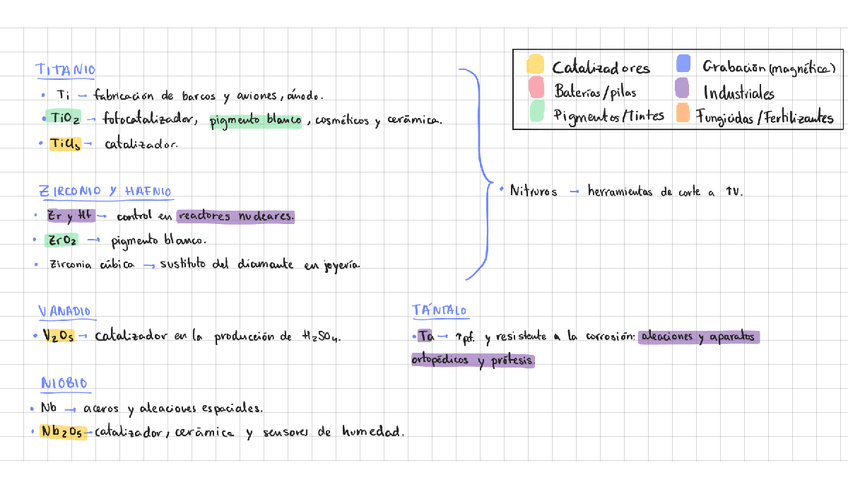 TITANIO
• Ti → fabricación de barcos y aviones, ánodo.
• TiO₂ → fotocatalizador, pigmento blanco, cosméticos y cerámica.
• TiCl₃ → catalizador.
ZIRCONIO Y HAFNIO
• Zr y Hf → control en reactores nucleares.
• ZrO₂ → pigmento blanco.
• Zirconia cúbica → sustituto del diamante en joyería.
VANADIO
• V₂O₅ → catalizador en la producción de H₂SO₄.
NIOBIO
• Nb → aceros y aleaciones espaciales.
• Nb₂O₅ → catalizador, cerámica y sensores de humedad.
Catalizadores
Baterías/pilas
Pigmentos/Tintes
Grabación (magnética)
Industriales
Fungicidas/Fertilizantes
• Nitruros → herramientas de corte a ↑v.
TÁNTALO
• Ta → ↑pf. y resistente a la corrosión: aleaciones y aparatos
ortopédicos y prótesis.